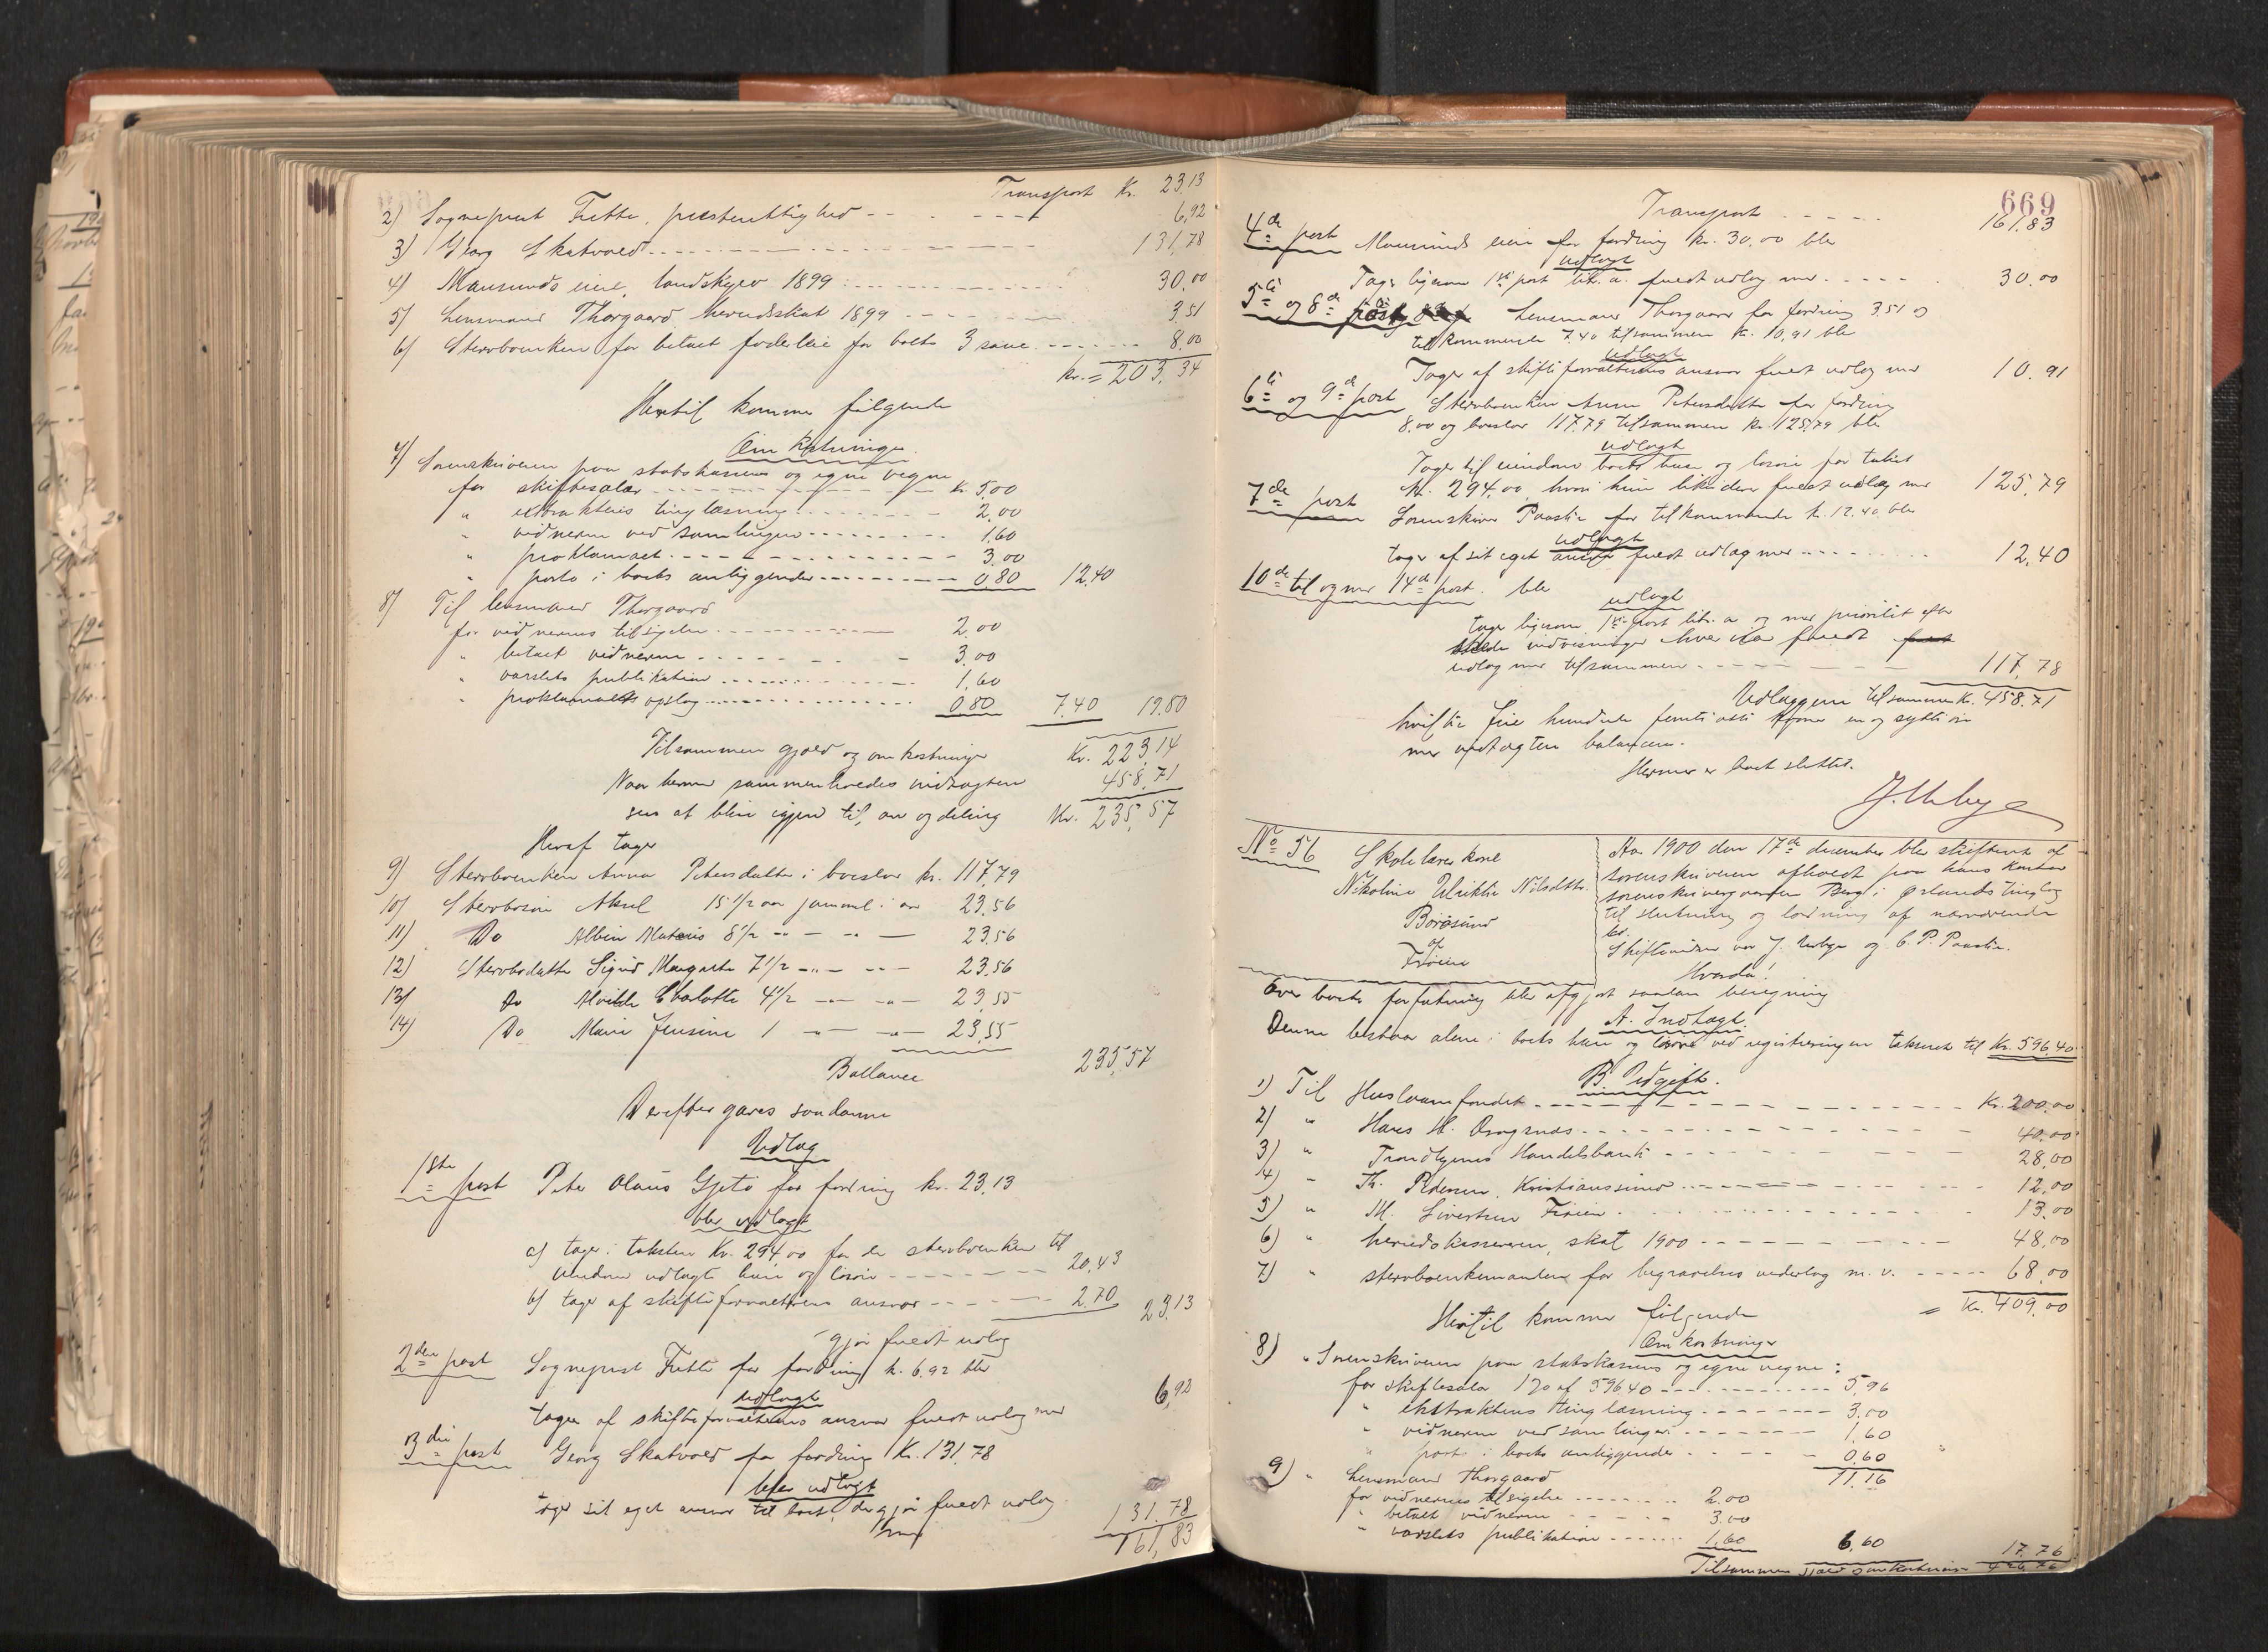 Transport Kr. 23,13
2) Sogneprest Fette, presterettighed 6,92
3) Georg Skatvold 131,78
4) Mausunds eiere, landskyld 1899 30,00
5) Lensmand Thorgaard herredsskat 1899 3,51
6) Stervboenken for betalt foderleie for boets 3 sauer 8,00
kr. = 203,34
Hertil kommer følgende
Omkostninger
7) Sorenskriveren paa statskassens og egne vegne
for skiftesalær kr. 5,00
" extraktens tinglæsning 2,00
" vidnerne ved samlingen 1,60
" proklamaet 3,00
" porto i boets anliggender 0,80 12,40
8) Til lensmand Thorgaard
for vidnernes tilsigelse 2,00
" betalt vidnerne 3,00
" varslets publikation 1,60
" proklamaets opslag 0,80 7,40 19,80
Tilsammen gjæld og omkostninger Kr. 223,14
Naar herme sammenholdes indtægten 458,71
sees at blive igjen til arv og deling Kr. 235,57
Heraf tager
9) Stervboenken Anna Petersdatter i boeslod kr. 117,79
10) Stervbosøn Aksel 15 1/2 aar gammel i arv 23,56
11) Do Albin Mateus 8 1/2 " — " — 23,56
12) Stervbodatter Sigrid Margrete 7 1/2 — " — " — 23,56
13) Do Alvilde Charlotte 4 1/2 — " — " — 23,55
14) Do Marie Jensine 1 — " — " — 23,55
Ballance 235,57
Derefter gjøres saadanne
Udlæg
1ste post Peter Olaus Gjetø for fordring kr. 23,13
blev udlagt
a) tager i taksten Kr. 294,00 for de stervboenken til
eiendom udlagte huse og løsøre 20,43
b) tager af skifteforvalterens ansvar 2,70 23,13
gjør fuldt udlæg
2den post Sogneprest Fette for fordring kr. 6,92 blev
udlagt
tager af skifteforvalterens ansvar fuldt udlæg med 6,92
3die post Georg Skatvold for fordring Kr. 131,78
blev udlagt
tager sit eget ansvar til boet, der gjør fuldt udlæg
med 131,78
161,83
669
Transport 161,83
4de post Mausunds eiere for fordring kr. 30,00 blev
udlagt
Tager ligesom 1ste post litr. a. fuldt udlæg med 30,00
5te og 8de post Lensmand Thorgaard for fordring 3,51 og
tilkommende 7,40 tilsammen kr. 10,91 blev
udlagt
Tager af skifteforvalterens ansvar fuldt udlæg med 10,91
6te og 9de post Stervboenken Anna Petersdatter for fordring
8,00 og boeslod 117,79 tilsammen kr. 125,79 blev
udlagt
Tager til eiendom boets huse og løsøre for takst
kr. 294,00 hvori hun likviderer fuldt udlæg med 125,79
7de post Sorenskriver Paastie for tilkommende kr. 12,40 blev
udlagt
tager af sit eget ansvar fuldt udlæg med 12,40
10de til og med 14de post. blev
udlagt
tager ligesom 1ste post litr. a og med prioritet efter
indvisninger hver især fuldt
udlæg med tilsammen 117,78
Udlæggene tilsammen Kr. 458,71
hvilke fire hundrede femti otte kroner en og sytti øre
med indtægten balancerer.
Hermed er boet sluttet.
J. Urbye
No 56 Skolelærerkone
Nikoline Ulrikke Nilsdatter
Borøsund
af
Frøien
Aar 1900 den 17de december blev skifteret af
sorenskriveren afholdt paa hans kontor
sorenskrivergaarden Berg i Ørlands tinglag
til slutning og lovning af nærværende
bo.
Skiftevidner var J. Urbye og C. P. Paastie.
Hvorda!
Over boets forfatning blev afgjort saadan beregning
A. Indtægt.
Denne bestaar alene i boets huse og løsøre ved registreringen takseret til Kr. 596,40
B. Udgift.
1) Til Huslaanfondet Kr. 200,00
2) " Hans H. 40,00
3) " Trondhjems Handelsbank 28,00
4) " Th. Pedersen, Kristianssund 12,00
5) " M. Sivertsen Frøien 13,00
6) " herredskassereren, skat 1900 48,00
7) " stervboenkemanden for begravelses vederlag m. v. 68,00
= Kr. 409,00
Hertil kommer følgende
Omkostninger
8) " Sorenskriveren paa statskassens og egne vegne:
for skiftesalær 1% af 596,40 5,96
" ekstraktens tinglæsning 3,00
" vidnerne ved samlingen 1,60
" porto i boets anliggender 0,60
11,16
9) " Lensmand Thorgaard
for vidnernes tilsigelse 2,00
" betalt vidnerne 3,00
" varslets publikation 1,60 6,60 17,76
Tilsammen gjæld og omkostninger 426,76